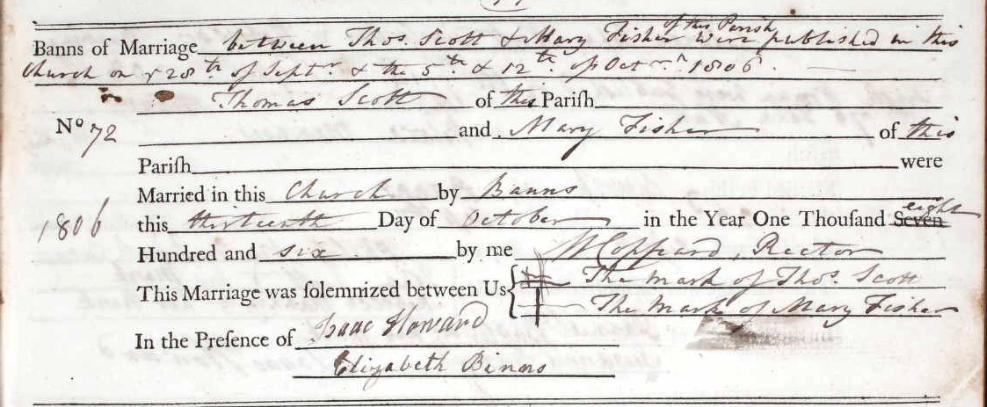 Banns of Marriage between Thos. Scott & Mary Fisher of this Parish were published in this
Church on ye 28th of Septr. & the 5th & 12th of Octr. 1806.
Thomas Scott of this Parish
No 72 and Mary Fisher of this
Parish were
Married in this Church by Banns
1806 this thirteenth Day of October in the Year One Thousand Seven eight
Hundred and six by me W Coppard, Rector
This Marriage was solemnized between Us The mark of Thos. Scott
The Mark of Mary Fisher
In the Presence of Isaac Howard
Elizabeth Binns